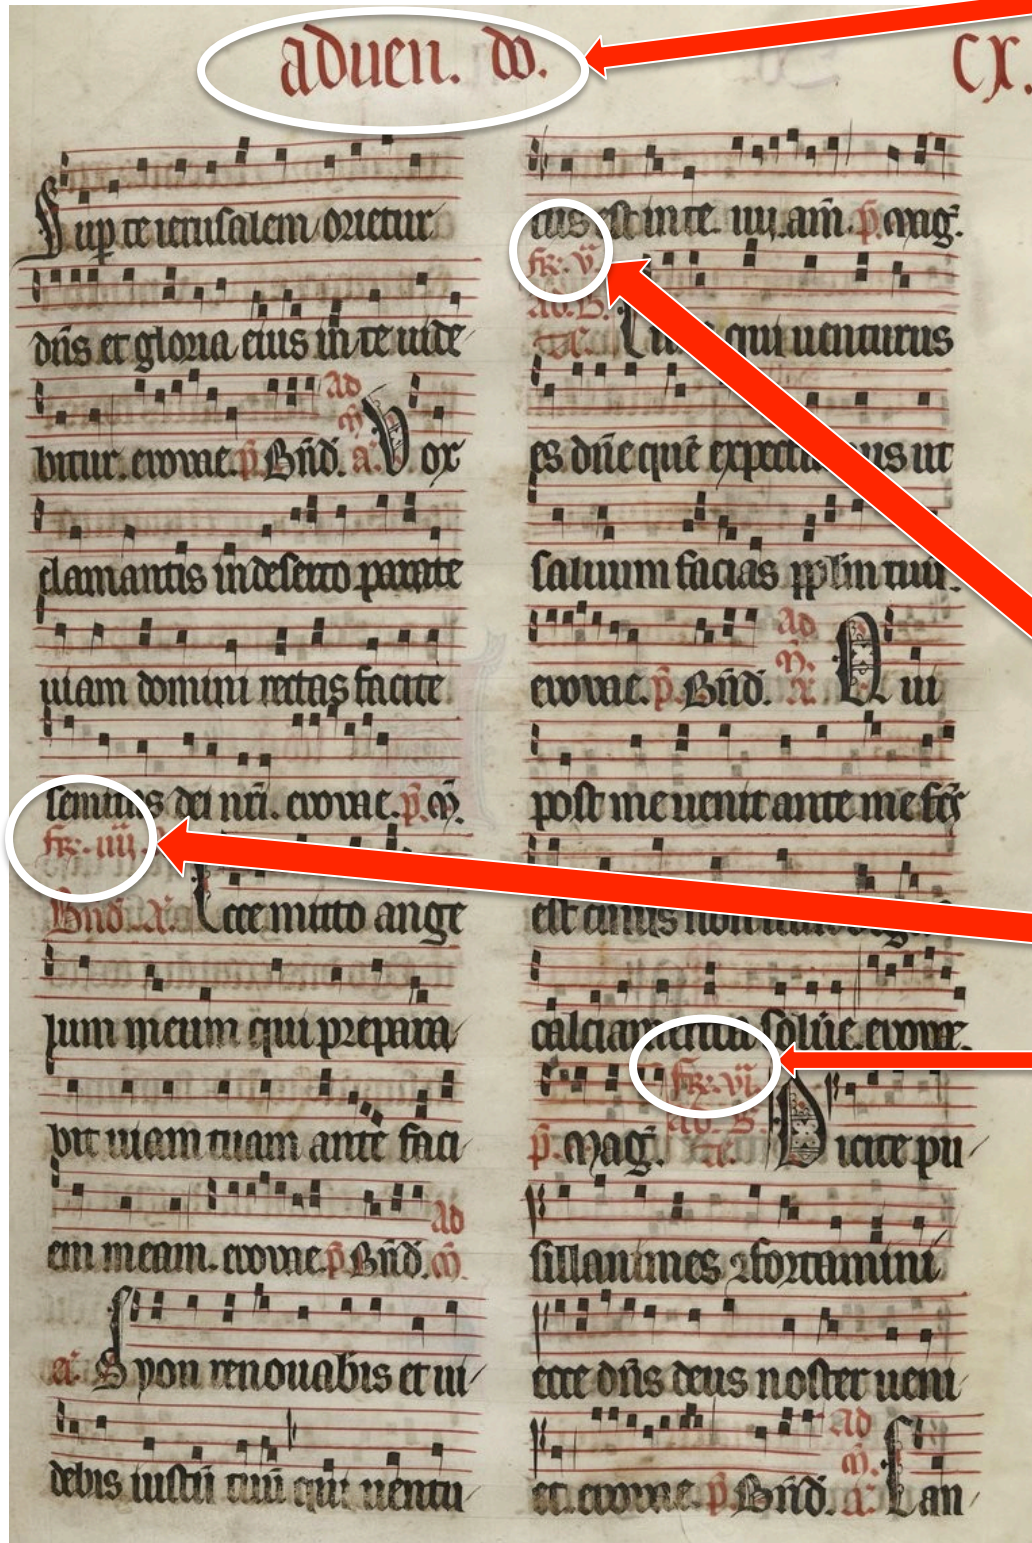 aduen. do. CX.
Sup te ierusalem orietur
dn̄s et gloria eius in te uide
bitur. evovae. p̄. Bn̄d. ad m̄. a. Vox
clamantis in deserto parate
uiam domini rectas facite
semitas dei nr̄i. evovae. p̄. m̄.
fr̄. iiii.
Bn̄d. a. Ecce mitto ange
lum meum qui prepara
bit uiam tuam ante faci
em meam. evovae. p̄. Bn̄d. ad m̄.
a. Syon renouabis et ui
debis iustū tuū qui uentu
rus est in te. p̄. mag.
fr̄. v.
ad. B. a. qui uenturus
es dn̄e quē ut
saluum facias pplm tuū.
evovae. p̄. Bn̄d. ad m̄. a. Qui
post me uenit ante me
est cuius non
solūe. evovae.
p̄. mag. fr̄. vi. ad. B. a. Dicite pu
sillanimes 9fortamini
ecce dn̄s deus noster ueni
et. evovae. p̄. Bn̄d. ad m̄. a. Can